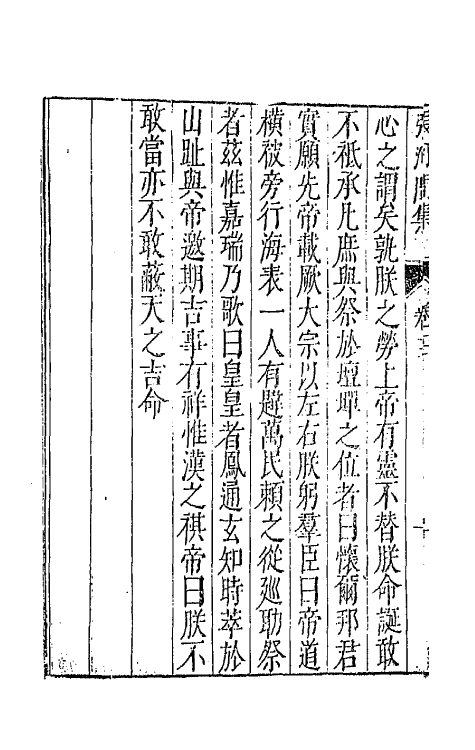 心之謂矣孰朕之勞上帝有靈不替朕命誕敢
不祗承凡庶與祭於壇墠之位者曰懷爾邦君
實願先帝載厥大宗以左右朕躬羣臣曰帝道
橫被旁行海表一人有韙萬民賴之從廵助祭
者茲惟嘉瑞乃歌曰皇皇者鳳通玄知時萃於
山趾與帝邀期吉事有祥惟漢之祺帝曰朕不
敢當亦不敢蔽天之吉命